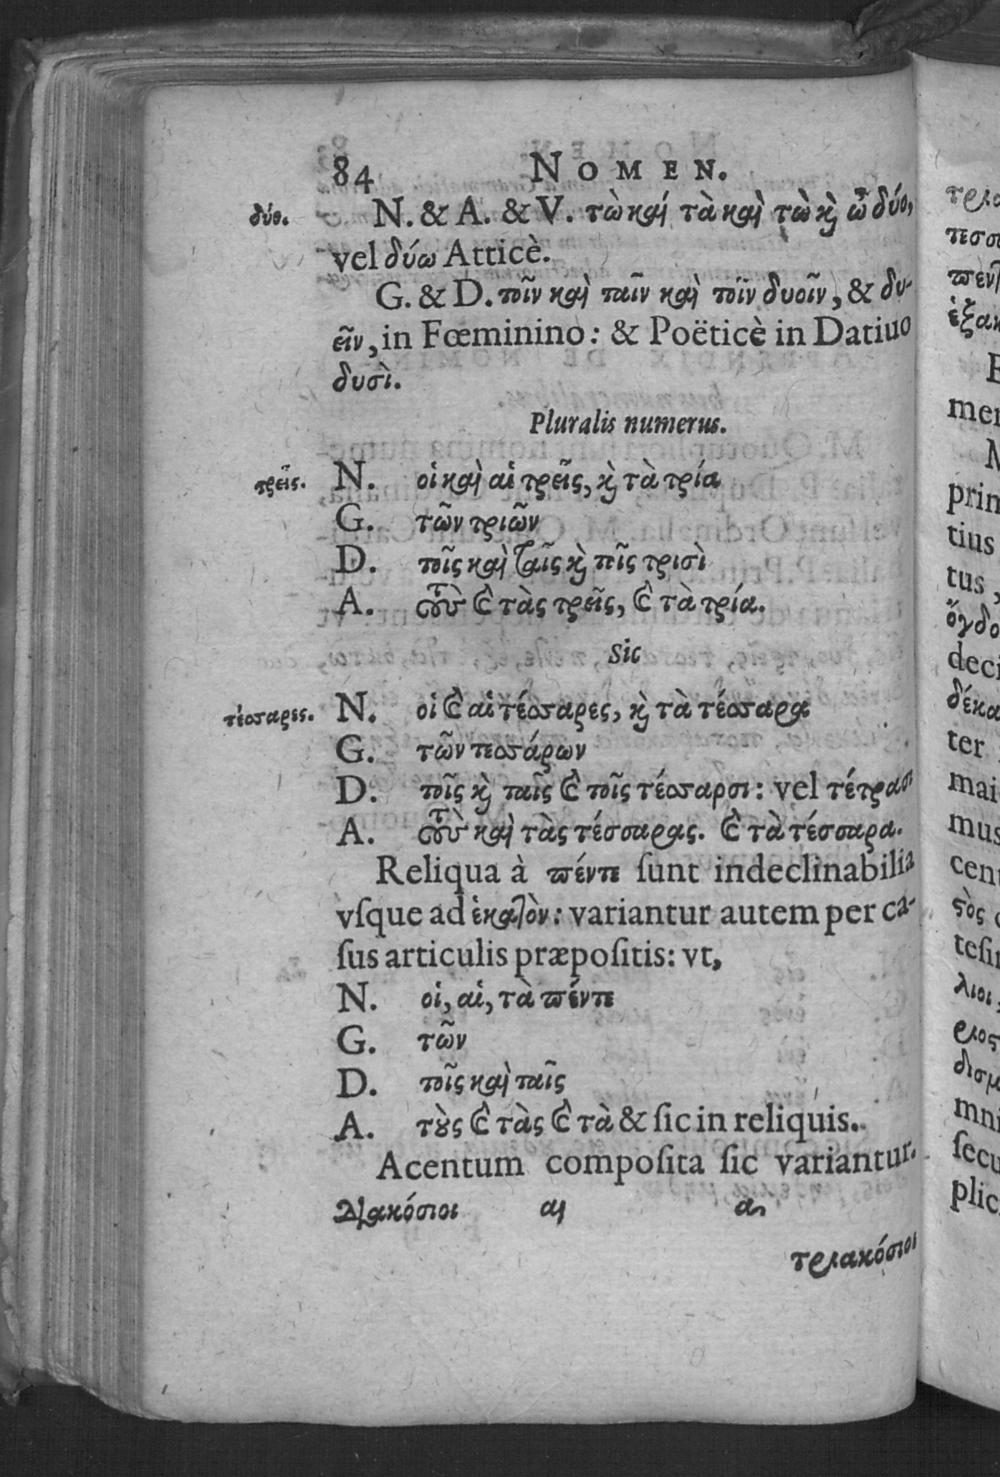 84 NOMEN.
δύο. N. & A. & V. τὼ καί τὰ καὶ τὼ καὶ ὦ δύο,
vel δύω Atticè.
G. & D. τοῖν καὶ ταῖν καὶ τοῖν δυοῖν, & δυ-
εῖν, in Fœminino: & Poëticè in Datiuo
δυσὶ.
Pluralis numerus.
τρεῖς. N. οἱ καὶ αἱ τρεῖς, καὶ τὰ τρία
G. τῶν τριῶν
D. τοῖς καὶ ταῖς καὶ τοῖς τρισὶ
A. τοὺς καὶ τὰς τρεῖς, καὶ τὰ τρία.
Sic
τέσσαρες. N. οἱ καὶ αἱ τέσσαρες, καὶ τὰ τέσσαρα
G. τῶν τεσσάρων
D. τοῖς καὶ ταῖς καὶ τοῖς τέσσαρσι: vel τέτρασι
A. τοὺς καὶ τὰς τέσσαρας. καὶ τὰ τέσσαρα.
Reliqua à πέντε ſunt indeclinabilia
vſque ad ἑκατὸν: variantur autem per ca-
ſus articulis præpoſitis: vt,
N. οἱ, αἱ, τὰ πέντε
G. τῶν
D. τοῖς καὶ ταῖς
A. τοὺς καὶ τὰς καὶ τὰ & ſic in reliquis.
Acentum compoſita ſic variantur.
Διακόσιοι αι α,
τριακόσιοι
τρια
πεντ
ἑξακ
mer
M
prim
tius
tus,
ὄγδο
deci
δέκα
ter
mai
mus
cent
τὸς
teſi
λιοι,
ριος
δισμ
mni
ſecu
plic